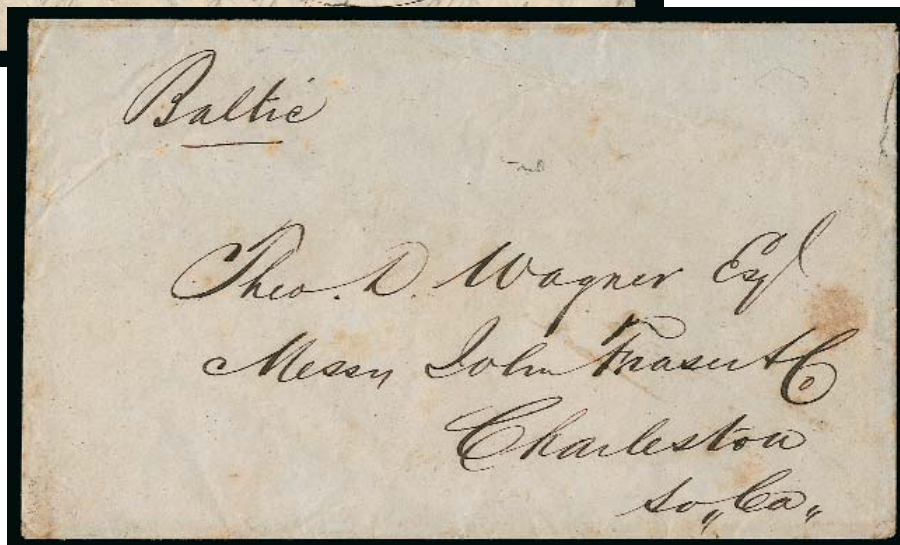 Baltic
Theo. D. Wagner Esq
Messrs John Fraser & Co
Charleston
So,, Ca,,